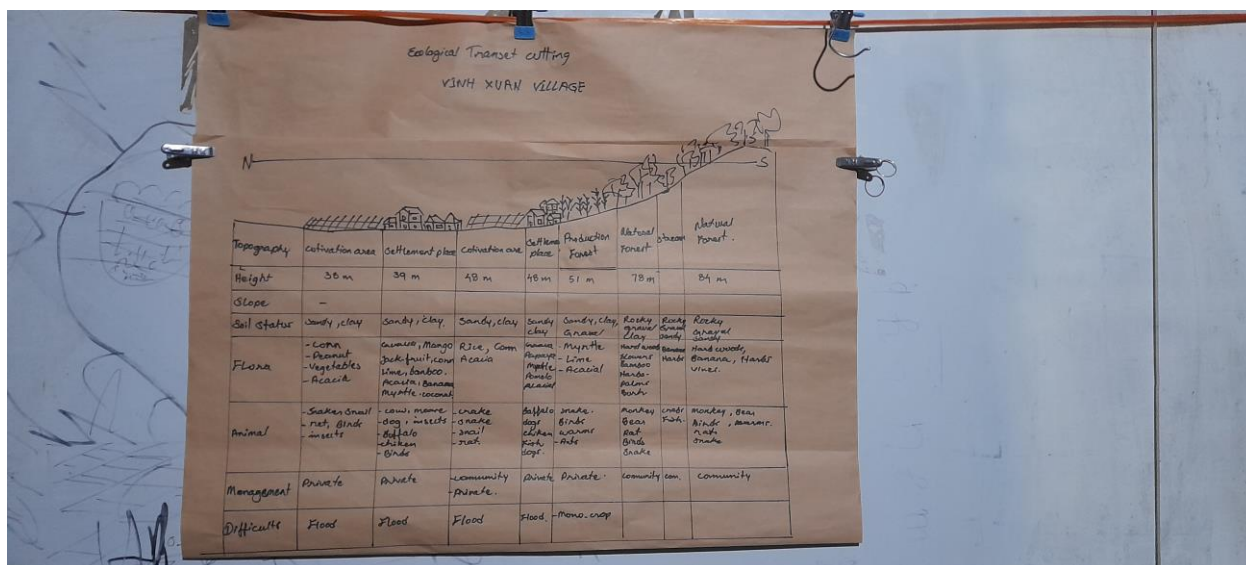 Ecological Transet cutting
VINH XUAN VILLAGE
N
S
Topography
Cotivation area
Settlement place
Cotivation are
Settleme place
Production Forest
Natural Forest
Stream
Natural Forest.
Height
38 m
39 m
48 m
48 m
51 m
78 m
84 m
Slope
-
Soil status
Sandy, clay
Sandy, clay.
Sandy, clay
Sandy clay
Sandy, clay, Gravel
Rocky gravel clay
Rocky Gravel Sandy
Rocky Graval Sandy
Flora
- Conn
- Peanut
- Vegetables
- Acacia
Mango
Jack-fruit, conn
Lime, bamboo.
Acacia, Banana
Myrtle. coconut
Rice, Conn
Acacia
Guava
Papaya
Myrtle
Pomelo
Acacial
- Myrtle
- Lime
- Acacial
Hardwood
Bamboo
Herbs.
palms
Banana
Herbs
Hard woods,
Banana, Harbs
vines.
Animal
- Snakes Snail
- rat, Birds
- insects
- cow,
- dog, insects
- Buffalo
chiken
- Birds
- snake
- snail
- rat.
Baffalo
dogs
chiken
Fish
dogs.
Snake.
Birds
warms
- Ants
Monkey
Bear
Rat
Birds
Snake
crabs
Fish.
monkey, Bear
Birds, warms.
rat.
Snake
Management
Private
Private
- community
- Private.
Private
Private.
Comunity
com.
Comunity
Difficults
Flood
Flood
Flood
Flood.
- Mono-crop